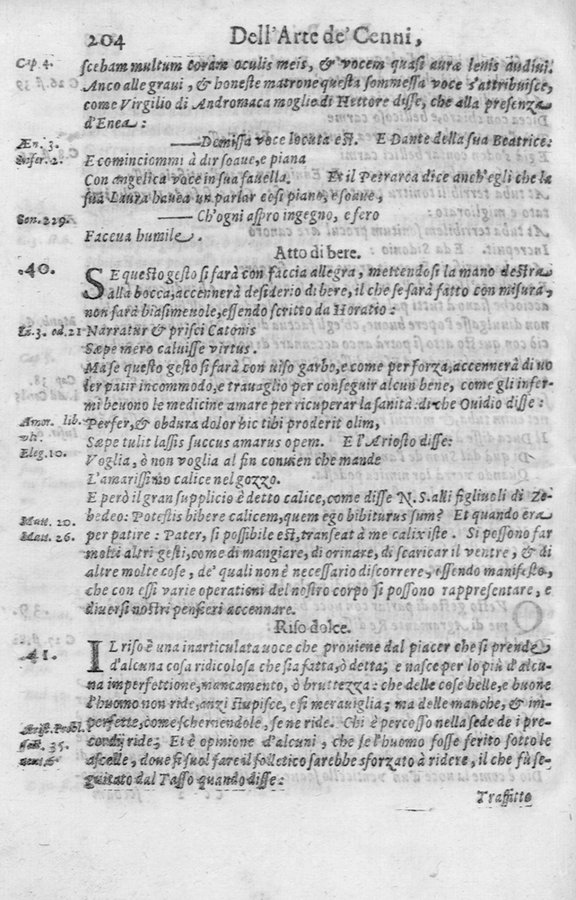 204 Dell'Arte de' Cenni,
Cap. 4. scebam multum coram oculis meis, & vocem quasi auræ lenis audiui.
Anco alle graui, & honeste matrone questa sommessa voce s'attribuisce,
come Virgilio di Andromaca moglie di Hettore disse, che alla presenza
d'Enea:
Æn. 3. —Demissa voce locuta est. E Dante della sua Beatrice:
Infer. 2. E cominciommi à dir soaue, e piana
Con angelica voce in sua fauella. Et il Petrarca dice anch'egli che la
sua Laura haueа un parlar così piano, e soaue,
Son. 229. —Ch'ogni aspro ingegno, e fero
Faceua humile.
Atto di bere.
.40. SE questo gesto si farà con faccia allegra, mettendosi la mano destra
alla bocca, accennerà desiderio di bere, il che se farà fatto con misura,
non farà biasimeuole, essendo scritto da Horatio:
Li. 3. od. 21 Narratur & prisci Catonis
Sæpe mero caluisse virtus.
Ma se questo gesto si farà con uiso garbo, e come per forza, accennerà di uo
ler patir incommodo, e trauaglio per conseguir alcun bene, come gli infer-
mi beuono le medicine amare per ricuperar la sanità: di che Ouidio disse:
Amor. lib. Perfer, & obdura dolor hic tibi proderit olim,
Sæpe tulit lassis succus amarus opem. E l'Ariosto disse:
Eleg. 10. Voglia, ò non voglia al fin conuien che mande
L'amarissimo calice nel gozzo.
E però il gran supplicio è detto calice, come disse N. S. alli figliuoli di Ze-
Matt. 20. bedeo: Potestis bibere calicem, quem ego bibiturus sum? Et quando era
Matt. 26. per patire: Pater, si possibile est, transeat à me calix iste. Si possono far
molti altri gesti, come di mangiare, di orinare, di scaricar il ventre, & di
altre molte cose, de' quali non è necessario discorrere, essendo manifesto,
che con essi varie operationi del nostro corpo si possono rappresentare, e
diuersi nostri pensieri accennare.
Riso dolce.
.41. IL riso è una inarticulata voce che prouiene dal piacer che si prende
d'alcuna cosa ridicolosa che sia fatta, ò detta; e nasce per lo più d'alcu-
na imperfettione, mancamento, ò bruttezza: che delle cose belle, e buone
l'huomo non ride, anzi stupisce, e si merauiglia; ma delle manche, & im-
perfette, come schernendole, se ne ride. Chi è percosso nella sede de i pre-
Arist. Probl. cordij ride; Et è opinione d'alcuni, che se l'huomo fosse ferito sotto le
35. ascelle, doue si suol fare il solletico sarebbe sforzato à ridere, il che fù se-
guitato dal Tasso quando disse:
Traffitto